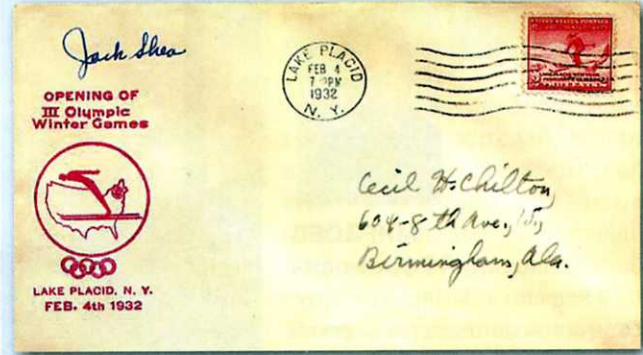 Jack Shea
OPENING OF
III Olympic
Winter Games
LAKE PLACID, N. Y.
FEB. 4th 1932
LAKE PLACID
FEB 4
PM
1932
N. Y.
UNITED STATES POSTAGE
Cecil H. Chilton,
604-8th Ave.,
Birmingham, Ala.